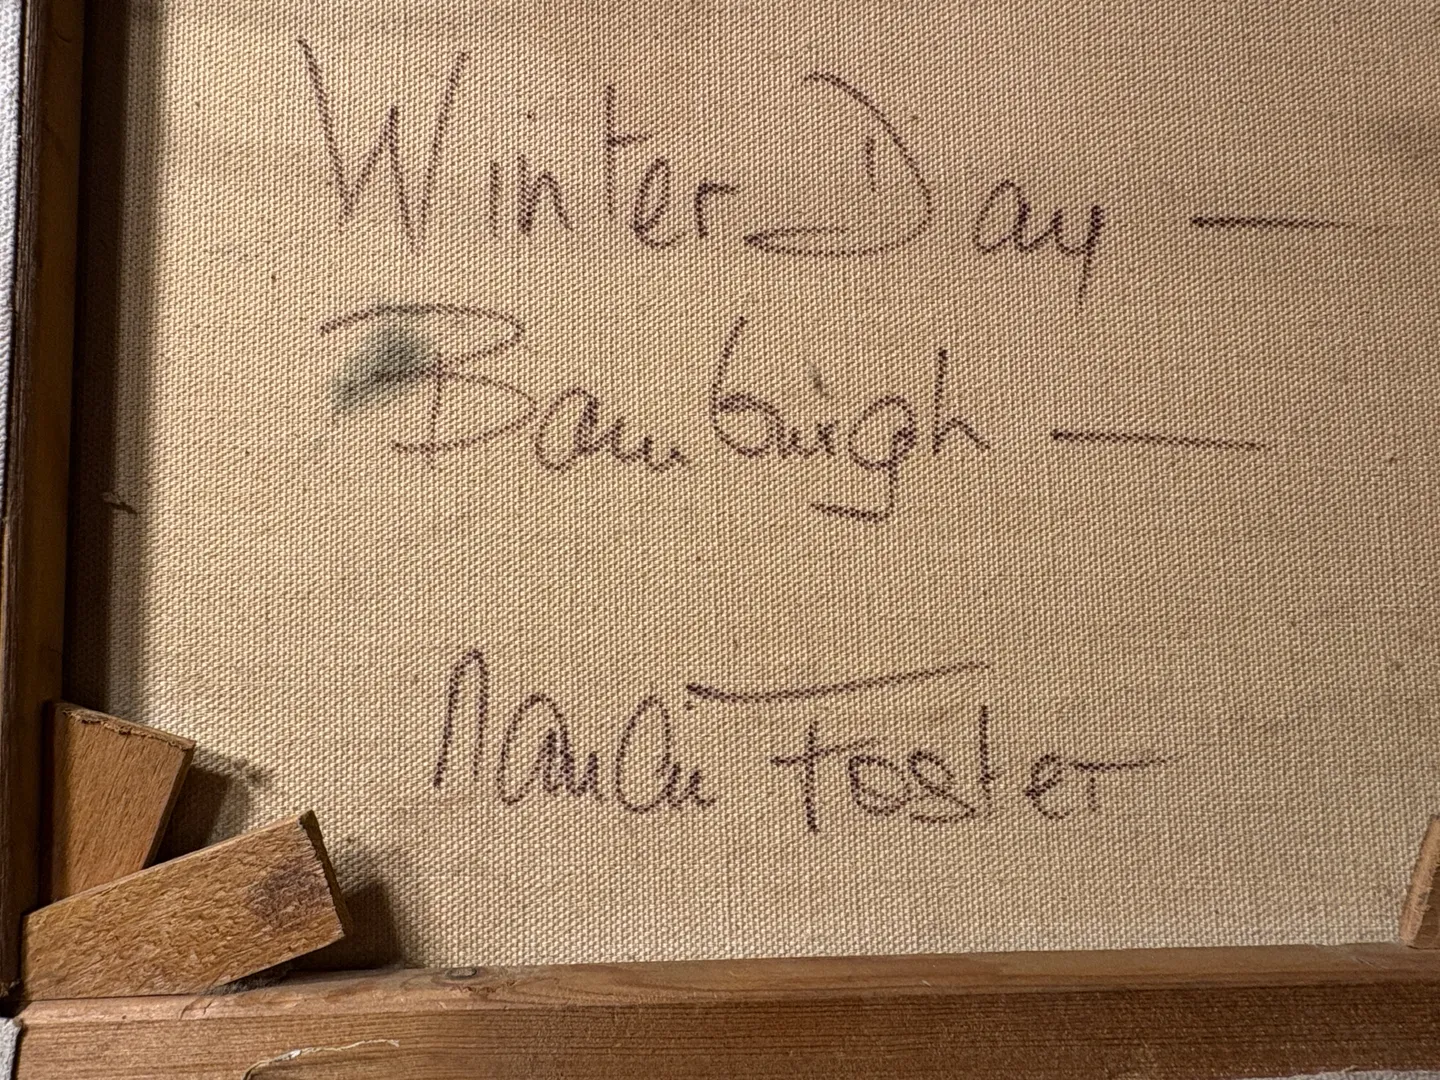 Winter Day —
Bamburgh —
Foster